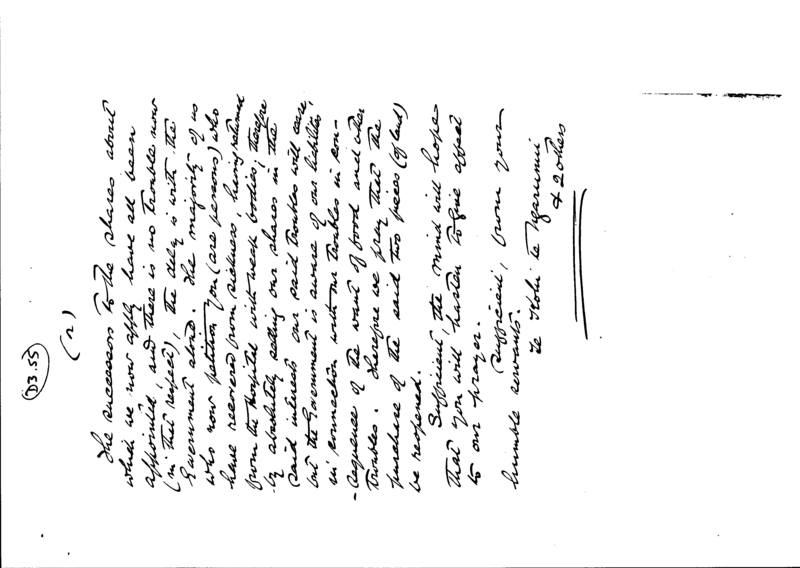 D3.55
(2)
The successors to the shares about
which we now apply have all been
appointed, and there is no trouble now
(in that respect), the delay is with the
Government alone. The majority of us
who now petition you (are persons) who
have recovered from sickness, having returned
from the Hospital with weak bodies; therefore
by absolutely selling our shares in the
said interests our said troubles will cease
but the Government is aware of our liabilities
in connection with our troubles in con-
-sequence of the want of food and other
troubles. Therefore we pray that the
purchase of the said two pieces (of land)
be reopened.
Sufficient, the mind will hope
that you will hasten to give effect
to our prayer.
Sufficient, from your
humble servants.
Te Hohi te Ngarumui
& 2 others